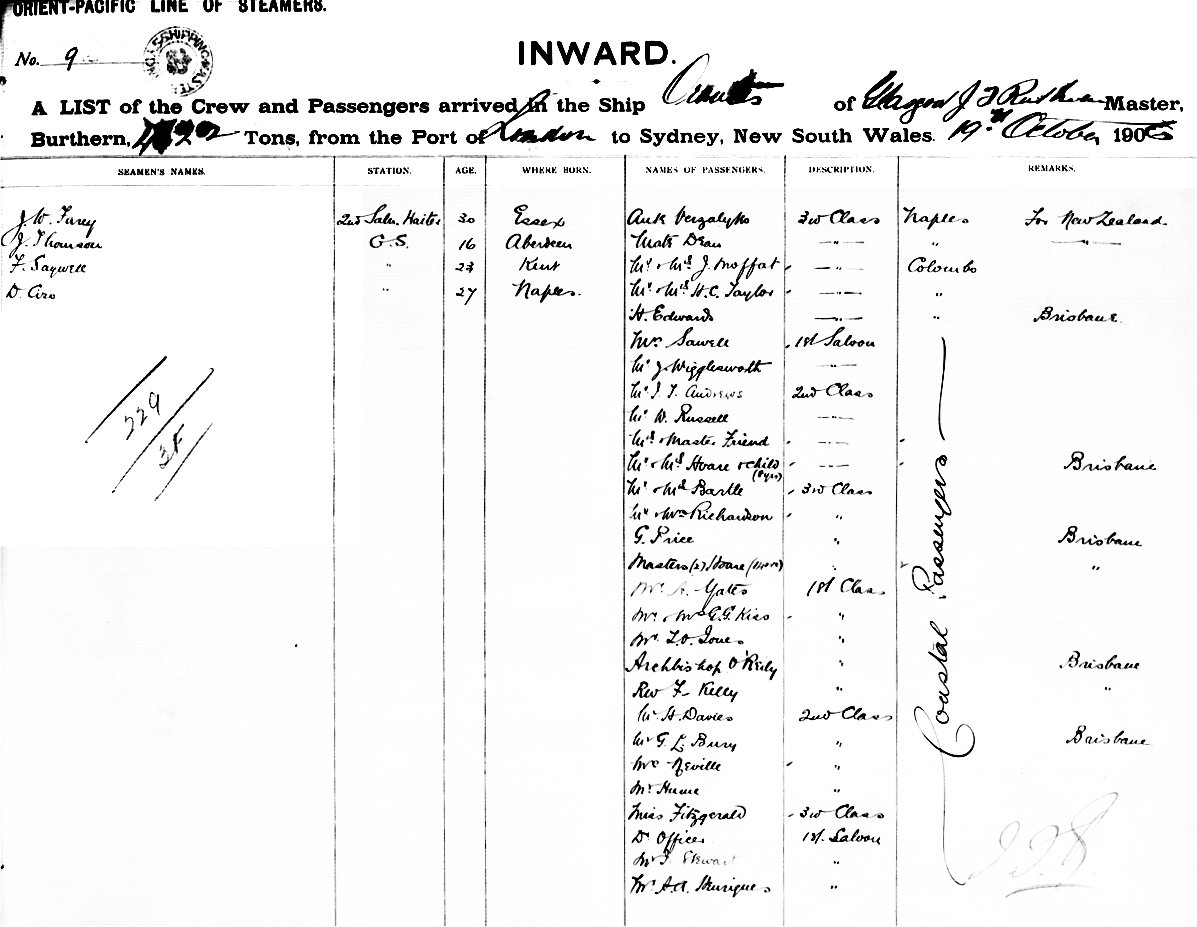 ORIENT-PACIFIC LINE OF STEAMERS.
No. 9
INWARD.
A LIST of the Crew and Passengers arrived in the Ship of Glasgow J F Master,
Burthern, Tons, from the Port of London to Sydney, New South Wales. 19th October 190
SEAMEN'S NAMES. STATION. AGE. WHERE BORN. NAMES OF PASSENGERS. DESCRIPTION. REMARKS.
J. W. Furey 2nd Saln. Waiter 30 Essex Ant. Verzalyko 3rd Class Naples For New Zealand.
J. Thomson G.S. 16 Aberdeen Mate Dean —"— " —"—
F. Saywell " 23 Kent Mr & Mrs J. Moffat —"— Colombo
D. Ciro " 27 Naples. Mr & Mrs H.C. Taylor —"— "
H. Edwards —"— " Brisbane.
Mrs Sawell 1st Saloon
Mr J Wigglesworth —"—
Mr J. T. Andrews 2nd Class
Mr W. Russell —"—
Mrs & Master Friend —"—
Mr & Mrs Hoare & child (8yrs) —"— Brisbane
Mr & Mrs Bartle 3rd Class
Mr & Mrs Richardson "
G. Price " Brisbane
Masters (2) Hoare " "
Mr A. Yates 1st Class
Mr & Mrs G.G. Kiss "
Mr L.O. Jones "
Archbishop O'Reily " Brisbane
Rev F Kelly " "
Mr H. Davies 2nd Class
Mr G. L. Bury " Brisbane
Mrs Neville "
Mr Hume "
Miss Fitzgerald 3rd Class
Dr Officer 1st Saloon
Mr J. Stewart "
Mr A.A. Henriques "
Coastal Passengers
229
3F